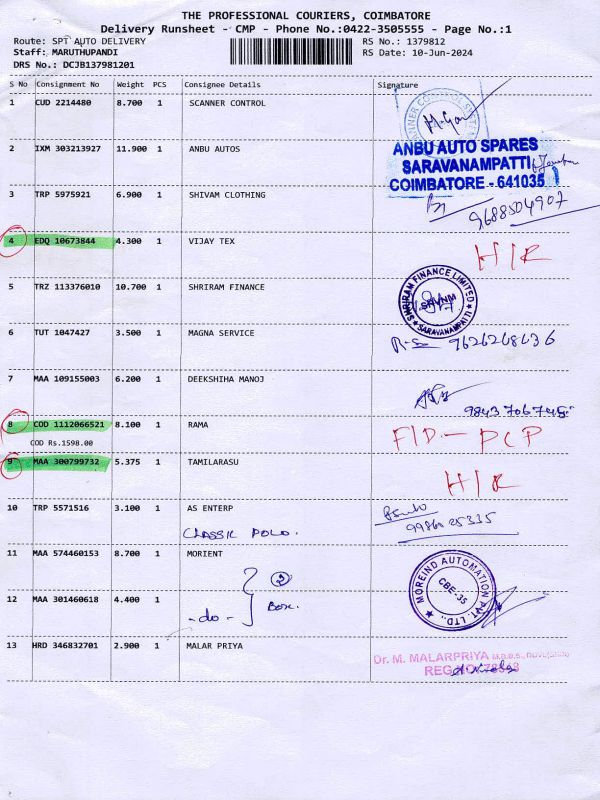 THE PROFESSIONAL COURIERS, COIMBATORE
Delivery Runsheet - CMP - Phone No.:0422-3505555 - Page No.:1
Route: SPT AUTO DELIVERY RS No.: 1379812
Staff: MARUTHUPANDI RS Date: 10-Jun-2024
DRS No.: DCJB137981201
S No Consignment No Weight PCS Consignee Details Signature
1 CUD 2214480 8.700 1 SCANNER CONTROL
2 IXM 303213927 11.900 1 ANBU AUTOS
ANBU AUTO SPARES
SARAVANAMPATTI
COIMBATORE - 641035
3 TRP 5975921 6.900 1 SHIVAM CLOTHING
9688504907
4 EDQ 10673844 4.300 1 VIJAY TEX
H/R
5 TRZ 113376010 10.700 1 SHRIRAM FINANCE
SHRIRAM FINANCE LIMITED
SRVNM
SARAVANAMPATTI
6 TUT 1047427 3.500 1 MAGNA SERVICE
9626268636
7 MAA 109155003 6.200 1 DEEKSHIHA MANOJ
9843706745
8 COD 1112066521 8.100 1 RAMA
COD Rs.1598.00
F/D - PCP
9 MAA 300799732 5.375 1 TAMILARASU
H/R
10 TRP 5571516 3.100 1 AS ENTERP
CLASSIC POLO.
11 MAA 574460153 8.700 1 MORIENT
MOREIND AUTOMATION PVT. LTD.,
CBE-35
2
Box.
12 MAA 301460618 4.400 1
-do-
13 HRD 346832701 2.900 1 MALAR PRIYA
Dr. M. MALARPRIYA
REG.NO.